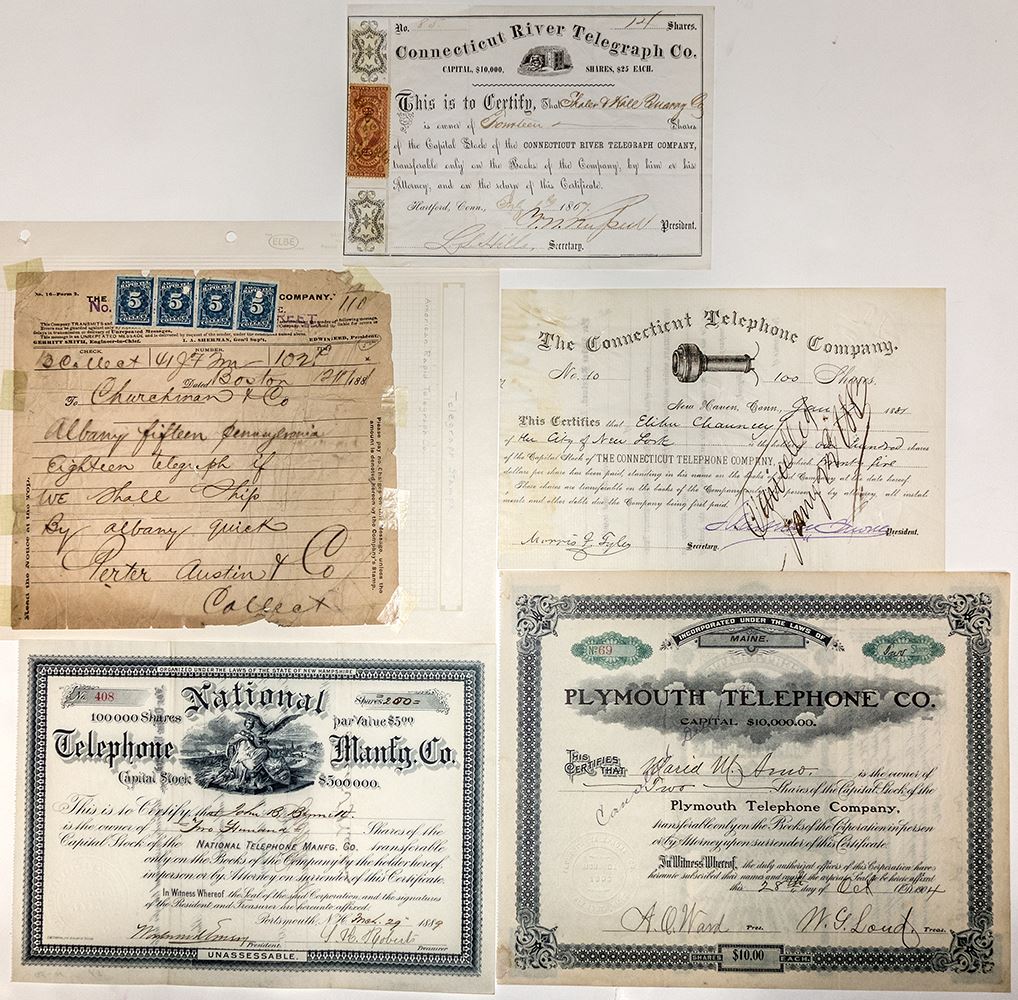 No. 85 14 Shares.
Connecticut River Telegraph Co.
CAPITAL, $10,000, SHARES, $25 EACH.
This is to Certify, That Thaler & Hall Quarry Co
is owner of Fourteen Shares
of the Capital Stock of the CONNECTICUT RIVER TELEGRAPH COMPANY,
transferable only on the Books of the Company, by him or his
Attorney, and on the return of this Certificate.
Hartford, Conn., 1867
President.
Secretary.
ELBE
No. 16—Form 2.
THE COMPANY.
No. 110
5 5 5 5
REET.
This Company TRANSMITS and
Errors can be guarded against only by
delays in transmission or delivery of Unrepeated Messages,
This message is an UNREPEATED MESSAGE and is delivered by request of the sender, under the
GERRITT SMITH, Engineer-in-Chief. T. A. SHERMAN, Gen'l Sup't, EDWIN REED, President.
CHECK NUMBER.
Collect 102
Dated Boston 1881
To Churchman & Co
Albany fifteen Pennsylvania
Eighteen telegraph if
we shall Ship
By albany quick
Porter Austin & Co
Collect
Read the Notice at the top.
Please pay no Charges on this message, unless the
amount is denoted by the Company's Stamp.
American Rapid Telegraph Co
Telegraph Stamps
The Connecticut Telephone Company.
No. 10 100 Shares.
New Haven, Conn., Jan 1881
This Certifies that Elihu Chauncey
of the City of New York is the holder of one hundred shares
of the Capital Stock of THE CONNECTICUT TELEPHONE COMPANY, on which twenty five
dollars per share has been paid, standing in his name on the books of said Company at the date hereof.
These shares are transferable on the books of the Company in person or by attorney, all instal-
ments and other debts due the Company being first paid.
Cancelled
Morris F. Tyler Secretary. President.
ORGANIZED UNDER THE LAWS OF THE STATE OF NEW HAMPSHIRE
No. 408 National Shares 200
100000 Shares par Value $5.00
Telephone Manfg. Co.
Capital Stock $500000.
This is to Certify, that John B. Bennett
is the owner of Two Hundred Shares of the
Capital Stock of the NATIONAL TELEPHONE MANFG. CO. transferable
only on the Books of the Company by the holder hereof
in person or by Attorney on surrender of this Certificate.
In Witness Whereof the Seal of the said Corporation, and the signatures
of the President and Treasurer are hereunto affixed.
Portsmouth, N.H. Mch. 29 1889
President. Treasurer
UNASSESSABLE.
INCORPORATED UNDER THE LAWS OF
MAINE.
No 69 Two Shares
PLYMOUTH TELEPHONE CO.
CAPITAL $10,000.00.
THIS CERTIFIES THAT David M. Amo. is the owner of
Two Shares of the Capital Stock of the
Plymouth Telephone Company,
transferable only on the Books of the Corporation in person
or by Attorney upon surrender of this Certificate.
In Witness Whereof, the duly authorized officers of this Corporation have
hereunto subscribed their names and caused the corporate Seal to be hereto affixed
this 28th day of Oct 1904
A. O. Ward Pres. W. G. Loud Treas.
SHARES $10.00 EACH.